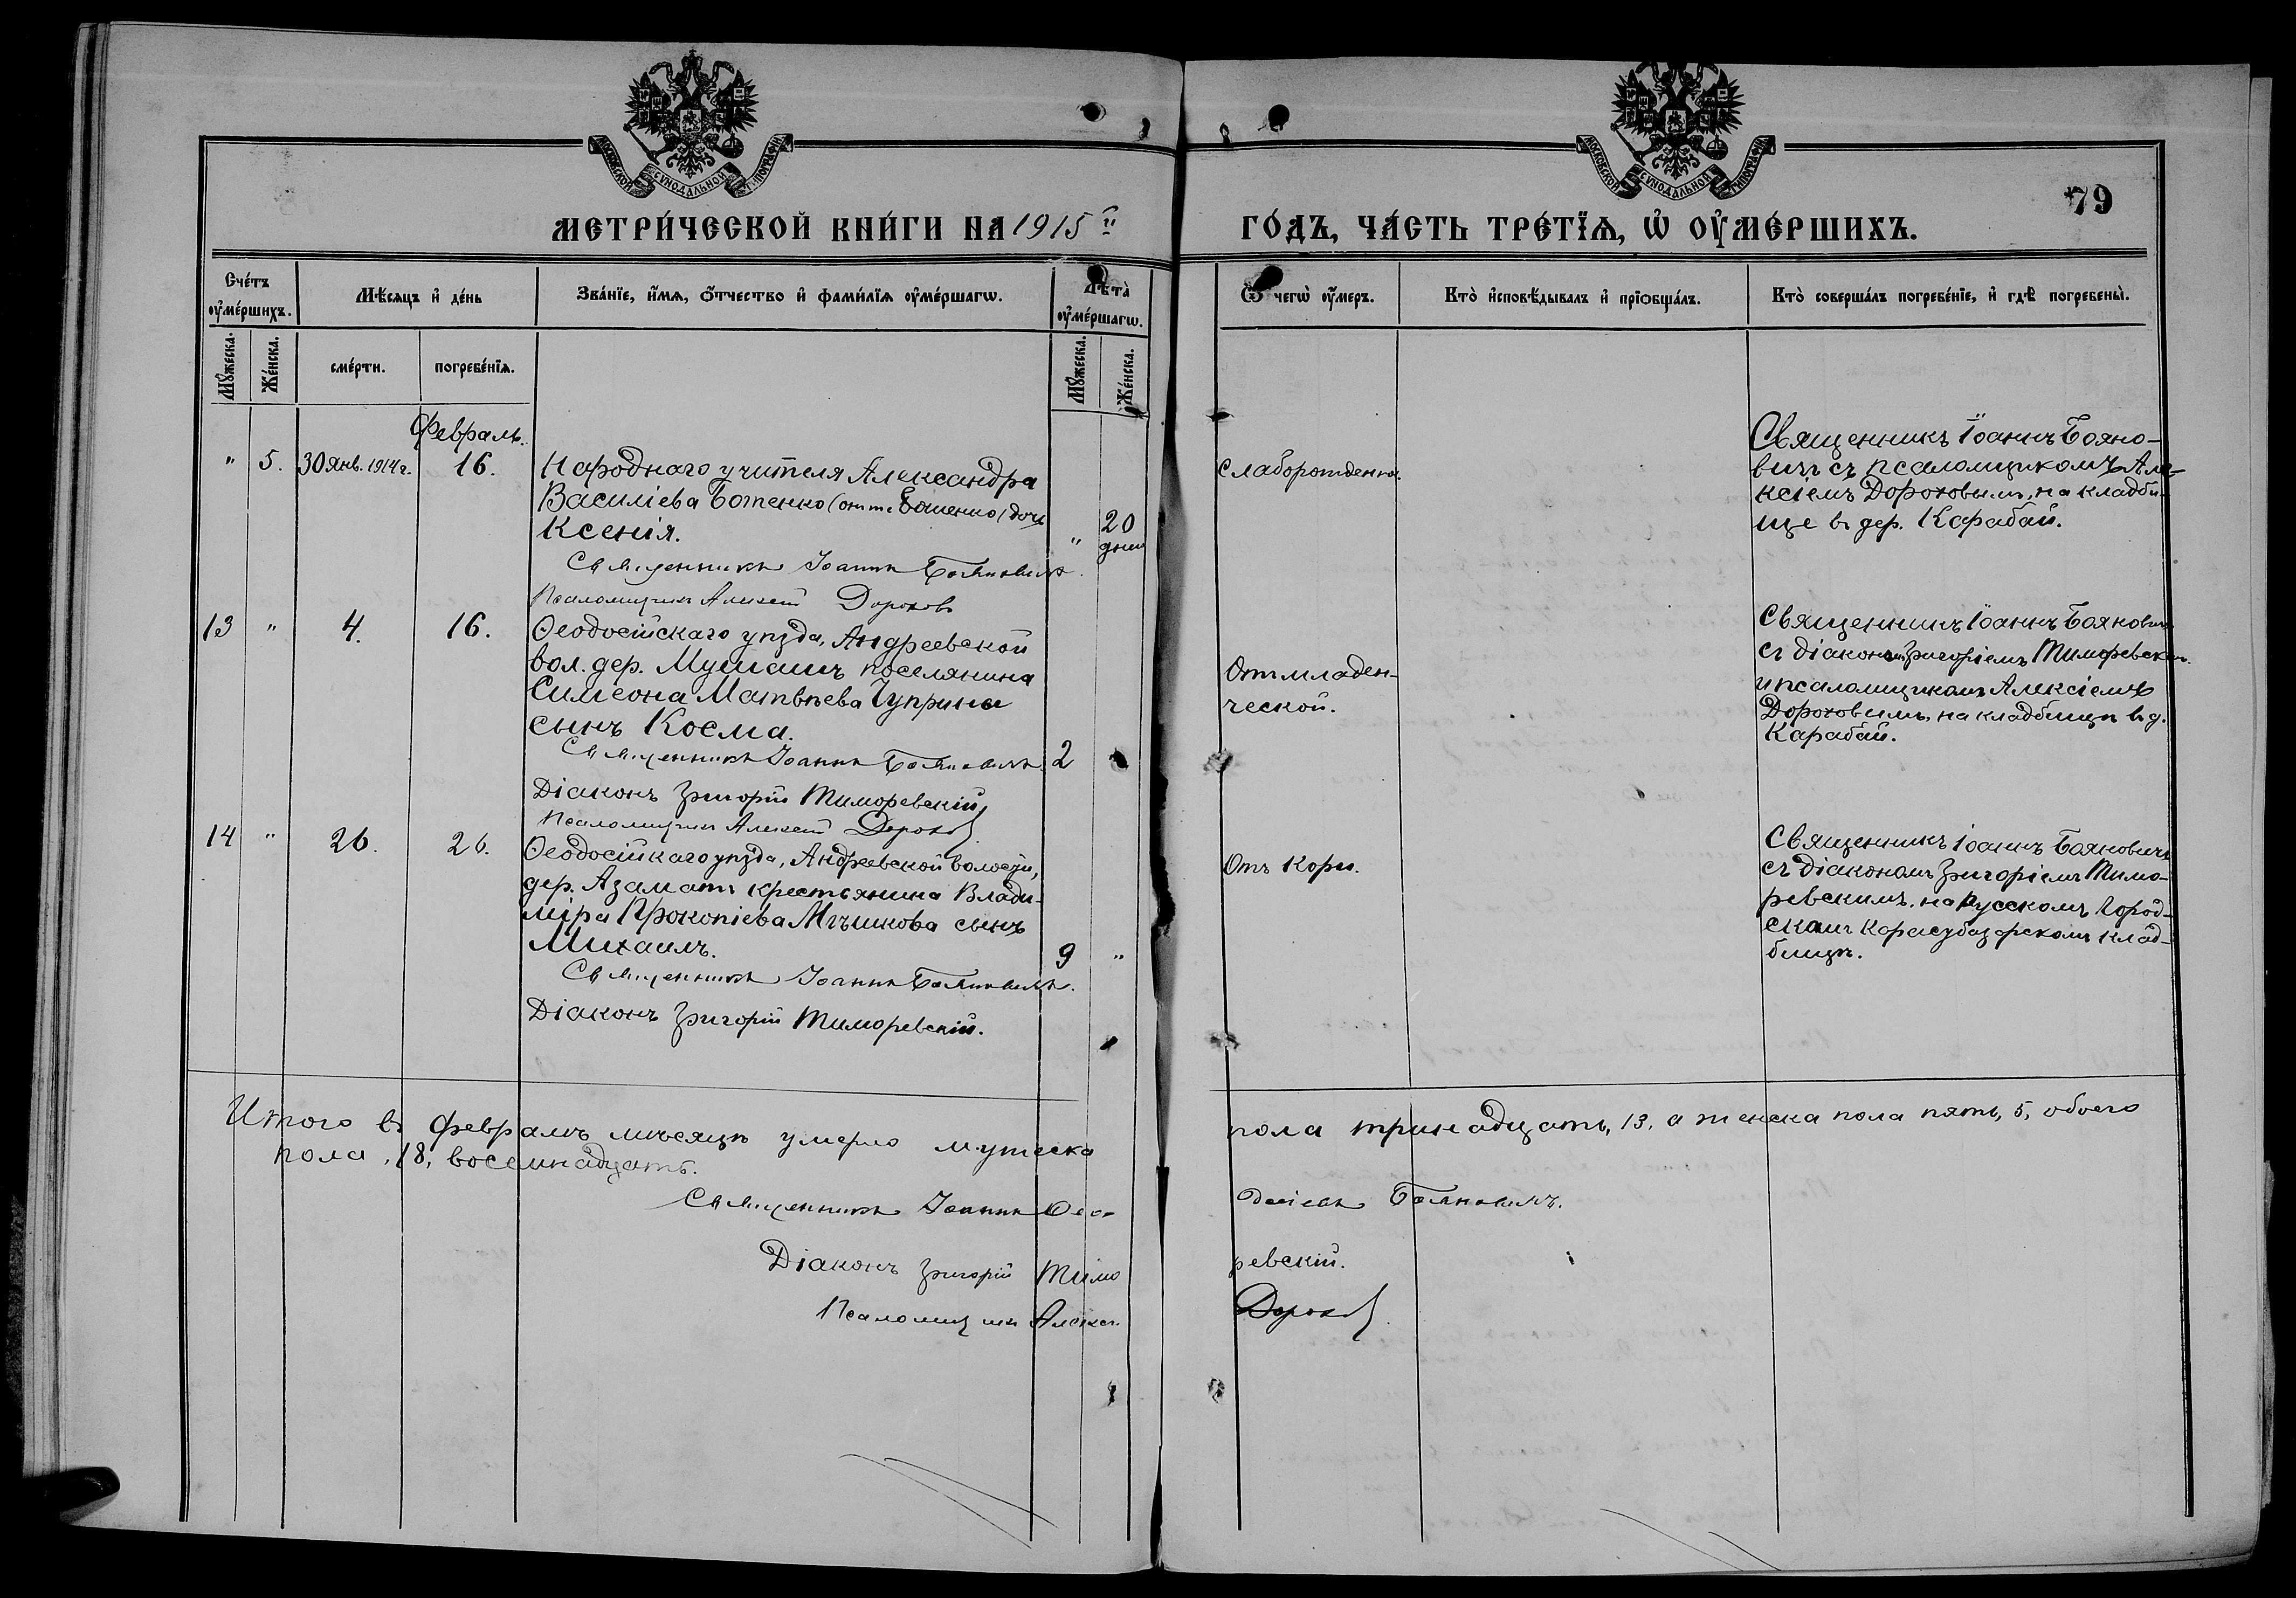 МОСКОВСКОЙ СУНОДАЛЬНОЙ ТИПОГРАФІИ
МОСКОВСКОЙ СУНОДАЛЬНОЙ ТИПОГРАФІИ
79
МЕТРИ́ЧЕСКОЙ КНИ́ГИ НА 1915 й
ГО́ДЪ, ЧА́СТЬ ТРЕ́ТЇѦ, Ѡ҆ ОУ҆МЕ́РШИХЪ.
Сче́тъ оу҆ме́ршихъ.
Мѣ́сяцъ и҆ де́нь
Зва́нїе, и҆́мѧ, ѻ҆́тчество и҆ фами́лїѧ оу҆ме́ршагѡ.
Лѣ́та̀ оу҆ме́ршагѡ.
Ѿ чегѡ̀ оу҆́меръ.
Кто̀ и҆сповѣ́дывалъ и҆ прїѻбща́лъ.
Кто̀ соверша́лъ погребе́нїе, и҆ гдѣ̀ погребены̀.
Мꙋ́жеска.
Же́нска.
сме́рти.
погребе́нїѧ.
Мꙋ́жеска.
Же́нска.
Февраль.
" 5. 30 янв. 1914 г. 16.
Народнаго учителя Александра
Василіева Боженко дочь
Ксенія.
" 20 дней
Священникъ Іоаннъ Бояновичъ.
Псаломщикъ Алексѣй Дороховъ
Слаборожденна.
Священникъ Іоаннъ Бояно-
вичъ съ псаломщикомъ Але-
ксіемъ Дороховымъ, на кладби-
ще въ дер. Карабай.
13 " 4. 16.
Ѳеодосійскаго уѣзда, Андреевской
вол. дер. Мушашъ поселянина
Симеона Матвѣева Чуприна
сынъ Косма.
2
Священникъ Іоаннъ Бояновичъ.
Діаконъ Григорій Тиморевскій
Псаломщикъ Алексѣй Дороховъ
От младен-
ческой.
Священникъ Іоаннъ Бояновичъ
съ діакономъ Григоріемъ Тиморевским.
и псаломщикомъ Алексіемъ
Дороховымъ, на кладбищѣ въ д.
Карабай.
14 " 26. 26.
Ѳеодосійскаго уѣзда, Андреевской волости,
дер. Азаматъ крестьянина Влади-
міра Прокопіева Мѣшкова сынъ
Михаилъ.
9 "
Священникъ Іоаннъ Бояновичъ.
Діаконъ Григорій Тиморевскій.
Отъ кори.
Священникъ Іоаннъ Бояновичъ
съ діакономъ Григоріемъ Тимо-
ревскимъ, на Русскомъ Город-
скомъ Карасубазарскомъ клад-
бищѣ.
Итого въ февралѣ мѣсяцѣ умерло мужеска пола тринадцать, 13, а женска пола пять, 5, обоего
пола, 18, восемнадцать.
Священникъ Іоаннъ Ѳеодосіевъ Бояновичъ.
Діаконъ Григорій Тиморевскій.
Псаломщикъ Алексѣй Дороховъ